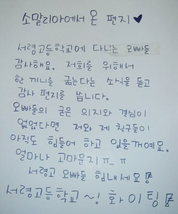 소말리아에서 온 편지♥
서령고등학교에 다니는 오빠들
감사해요. 저희를 위해서
한 끼니를 굶는다는 소식을 듣고
감사 편지를 씁니다.
오빠들의 굳은 의지와 결심이
없었다면 저와 제 친구들이
아직도 힘들어 하고 있을꺼예요.
얼마나 고마운지 ㅠㅠ
서령고 오빠들 힘내세요
서령고등학교~! 화이팅